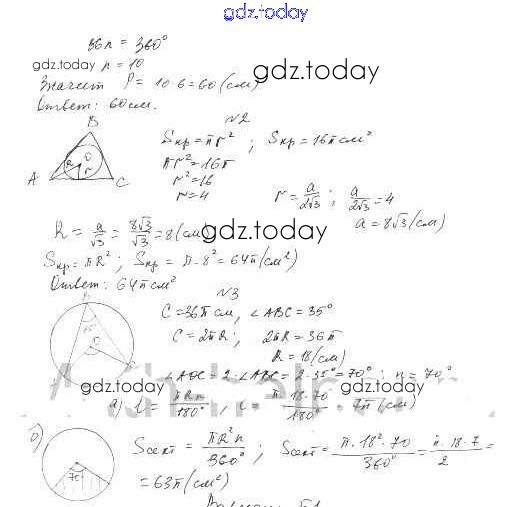 gdz.today
36n = 360°
gdz.today n = 10
Значит P = 10·6 = 60 (см) gdz.today
Ответ: 60 см.
N2
B
Sкр = πr² ; Sкр = 16π см²
πr² = 16π
r² = 16
r = 4
r = a/2√3 ; a/2√3 = 4
a = 8√3 (см)
O
R r
A C
R = a/√3 = 8√3/√3 = 8 (см) gdz.today
Sкр = πR² ; Sкр = π·8² = 64π (см²)
Ответ: 64π см²
N3
C = 36π см, ∠ABC = 35°
C = 2πR ; 2πR = 36π
R = 18 (см)
∠AOC = 2·∠ABC = 2·35° = 70° ; n = 70°
O
gdz.today gdz.today
а) l = πRn/180° , l = π·18·70/180° 7π (см)
б) Sсект = πR²n/360° ; Sсект = π·18²·70/360° = π·18·7/2 =
70°
= 63π (см²)
gdz.today gdz.today